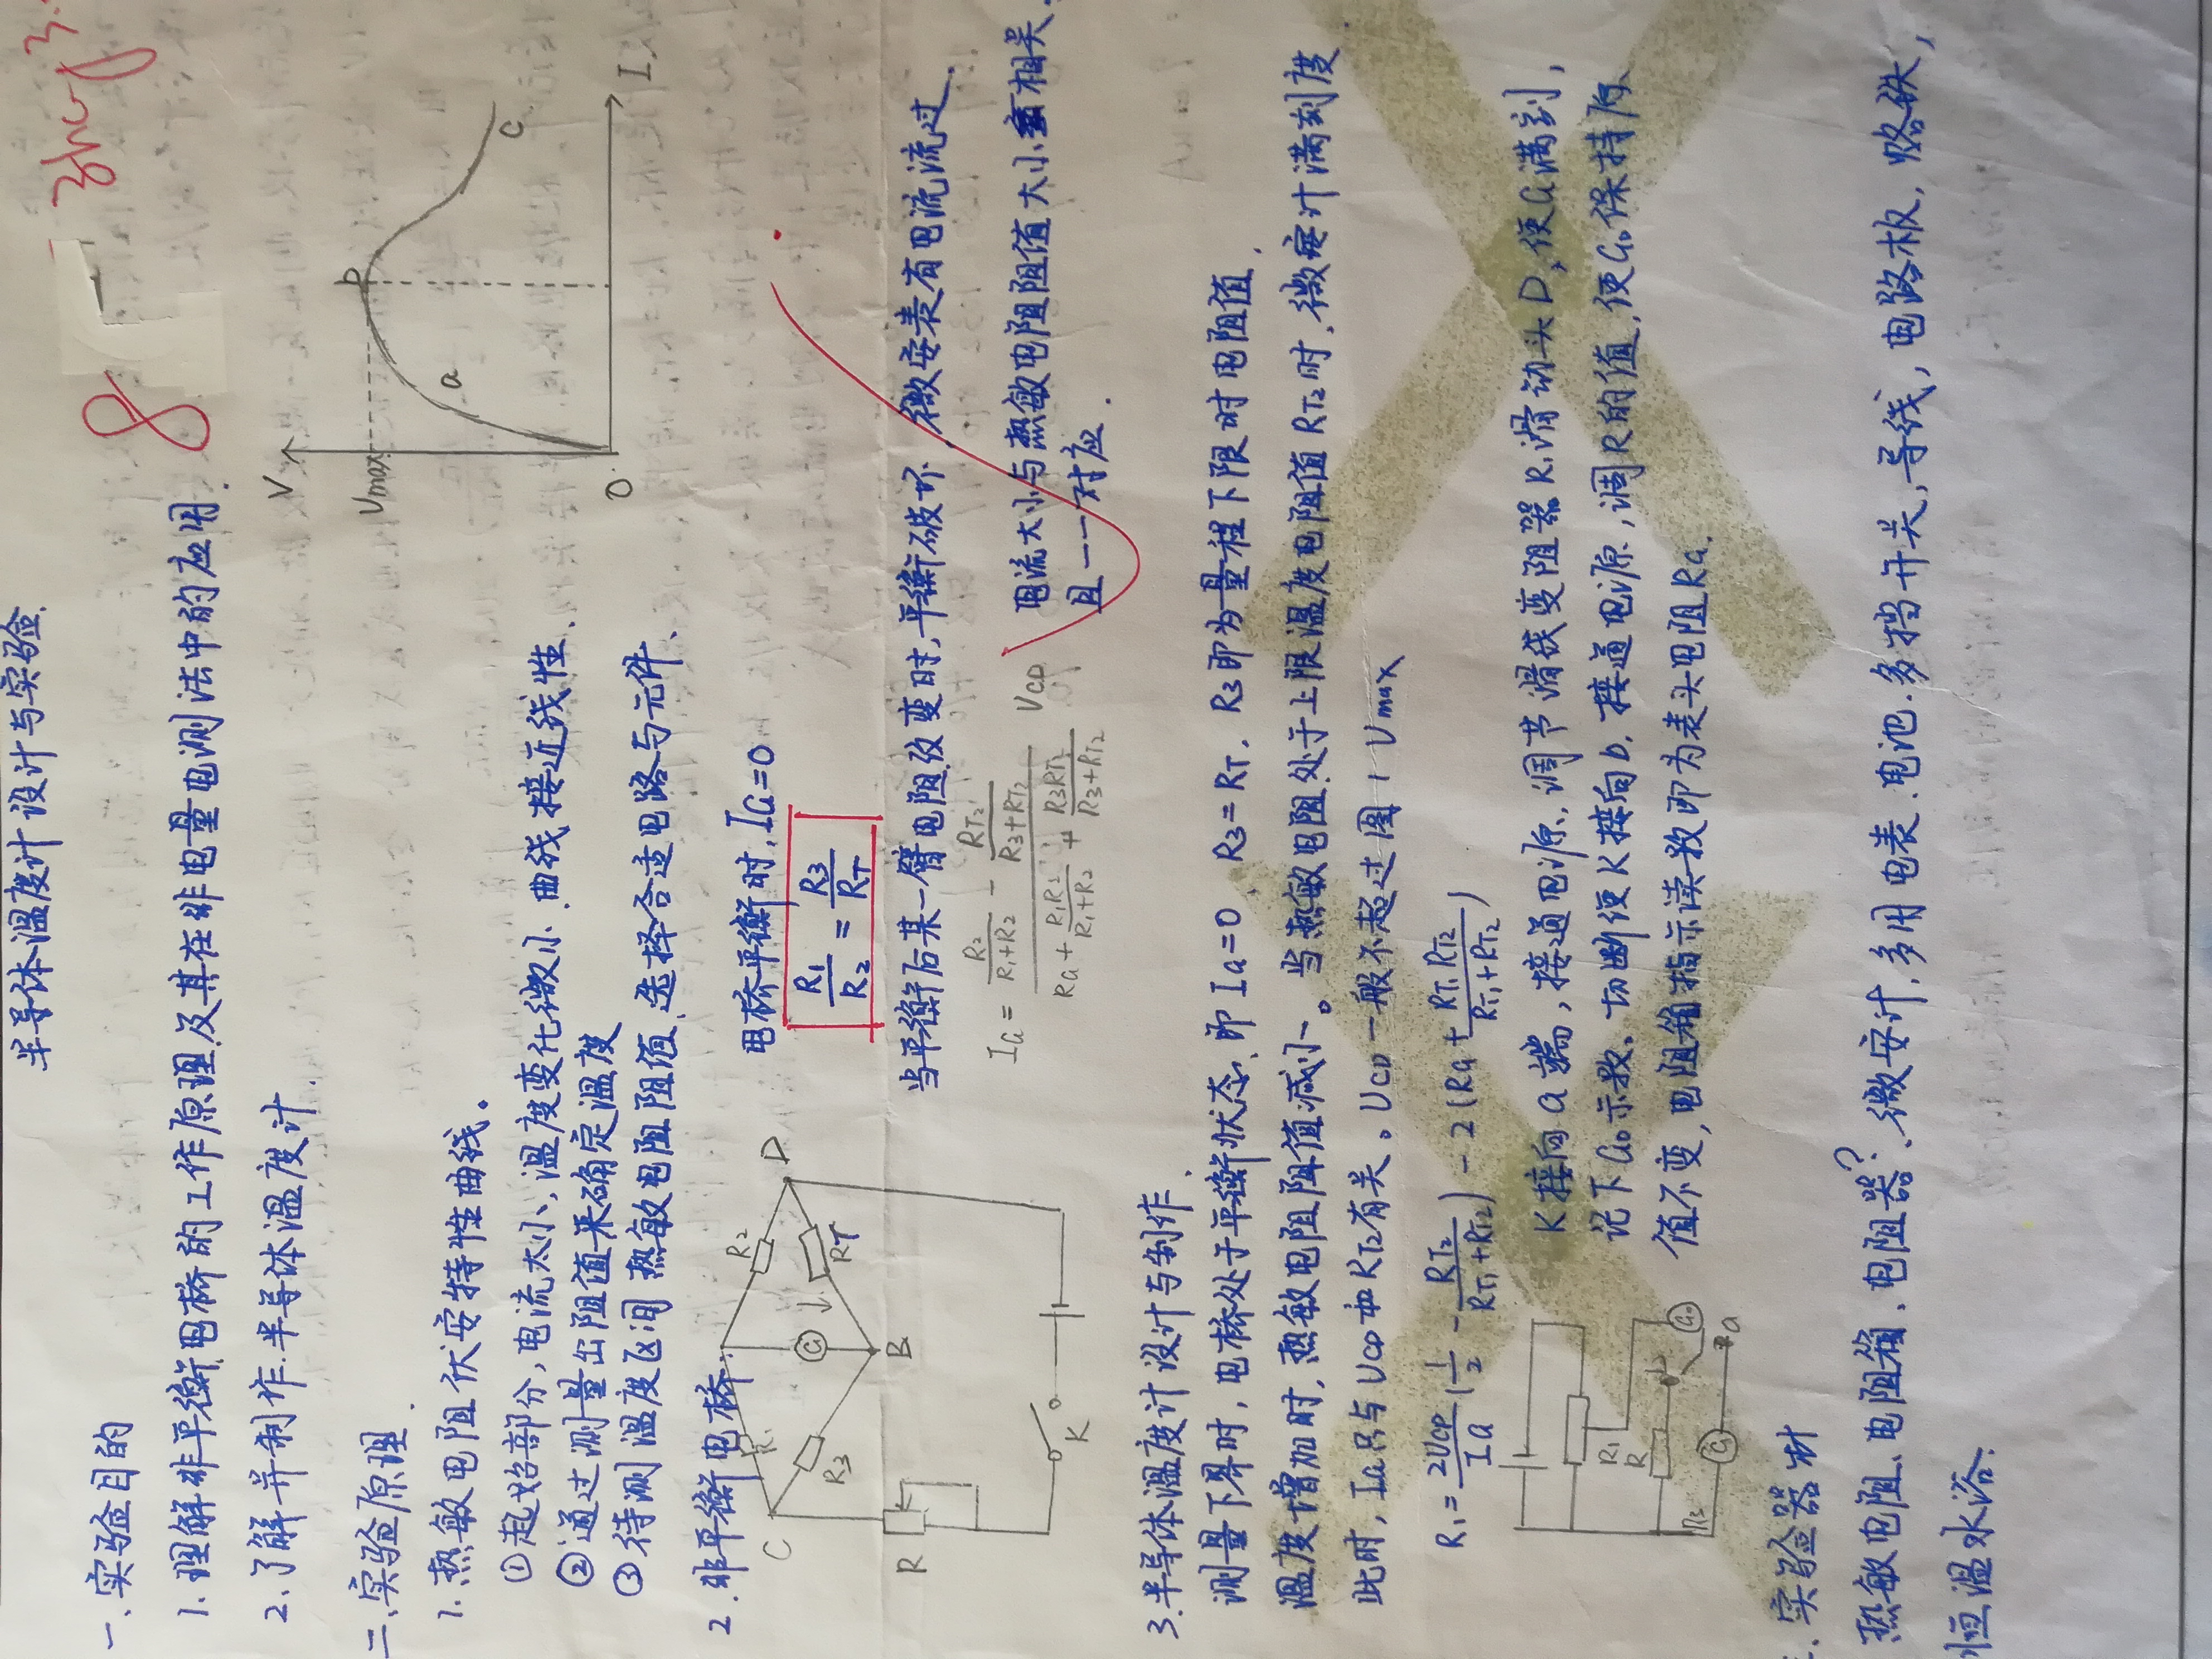 半导体温度计设计与实验
8
一、实验目的
1. 理解非平衡电桥的工作原理及其在非电量电测法中的应用.
2. 了解并制作半导体温度计.
二、实验原理.
1. 热敏电阻伏安特性曲线。
①起始部分,电流太小,温度变化微小.曲线接近线性.
②通过测量出阻值来确定温度
③待测温度区间热敏电阻阻值,选择合适电路与元件、
V
Umax
b
a
c
O
I
2. 非平衡电桥.
C
R1
R2
D
R3
G
RT
B
R
K
电桥平衡时, IG=0
R1/R2 = R3/RT
当平衡后某一臂电阻改变时,平衡破坏,微安表有电流流过.
IG = (R2/(R1+R2) - RT2/(R3+RT2)) / (RG + R1R2/(R1+R2) + R3RT2/(R3+RT2)) VCD
电流大小与热敏电阻阻值大小相关.
且一一对应.
3. 半导体温度计设计与制作.
测量下界时,电桥处于平衡状态,即 IG=0, R3=RT, R3即为量程下限时电阻值.
温度增加时,热敏电阻阻值减小。当热敏电阻处于上限温度电阻值RT2时,微安计满刻度.
此时, IG只与UCD和RT2有关。UCD一般不超过图1 Umax
R1 = 2UCD/IG (1/2 - RT2/(RT1+RT2)) - 2(RG + RT1RT2/(RT1+RT2))
R1
R
b
R3
G0
G
a
K接向a端,接通电源,调节滑线变阻器R1滑动头D,使G满刻,
记下G0示数。切断使K接向b,接通电源,调R的值,使G0保持原
值不变,电阻箱指示读数即为表头电阻RG.
三、实验器材
热敏电阻、电阻箱、电阻器?、微安计,多用电表、电池.多挡开关,导线,电路板,烙铁,
恒温水浴.